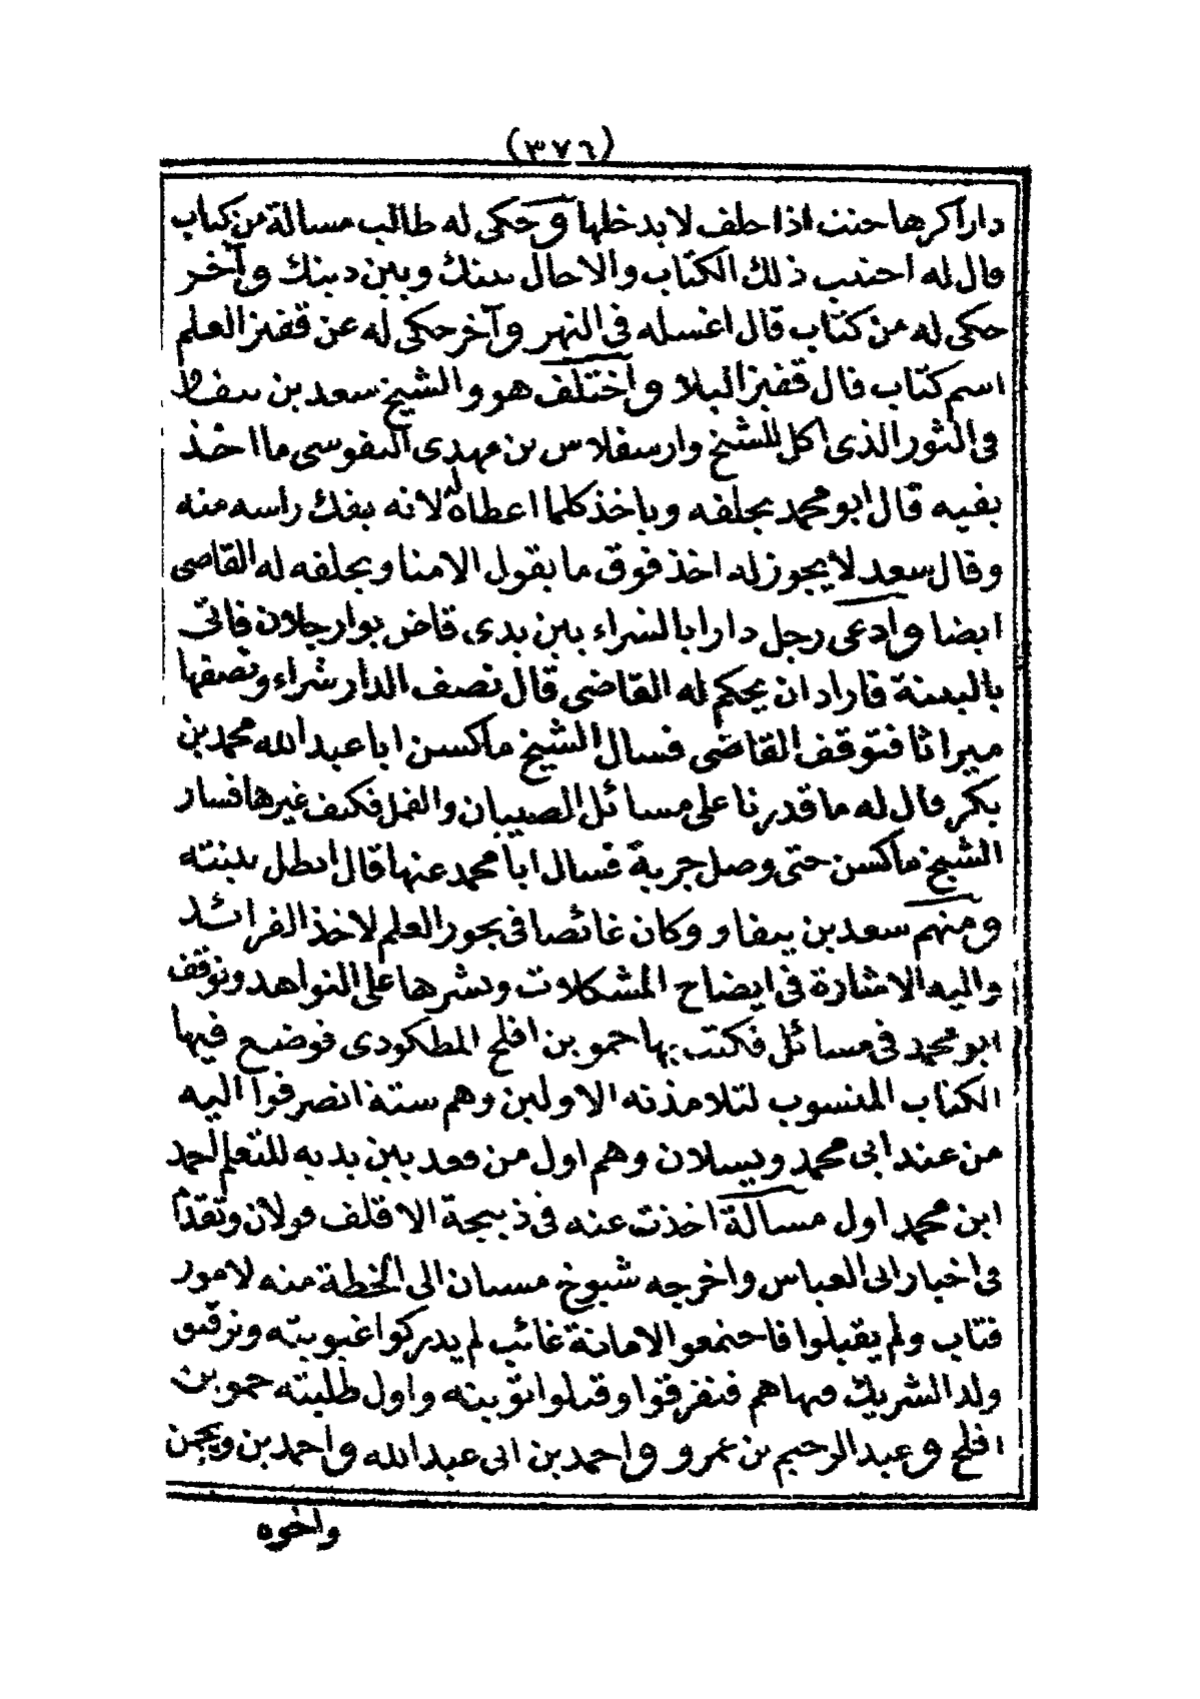 (٣٧٦)
دارآكرها حنث اذا حلف لا يدخلها وحكى له طالب مسالة من كتاب
قال له اجتنب ذلك الكتاب والا حال بينك وبين دينك وآخر
حكى له من كتاب قال اغسله فى النهر وآخر حكى له عن قفيز العلم
اسم كتاب قال قفيز البلا واختلف هو والشيخ سعد بن ييفاو
فى الثور الذى اكل للشيخ وارسفلاس بن مهدى النفوسى ما اخذ
بفيه قال ابو محمد يحلفه وياخذ كلما اعطاه له لانه يفك رأسه منه
وقال سعد لا يجوز له اخذ فوق ما يقول الامنا ويحلفه له القاضى
ايضا وادعى رجل دارا بالشراء بين يدى قاض بوارجلان فاتى
بالبينة فاراد ان يحكم له القاضى قال نصف الدار شراء ونصفها
ميراثا فتوقف القاضى فسال الشيخ ماكسن ابا عبد الله محمد بن
بكر قال له ما قدرنا على مسائل الصبيان والقمل فكيف غيرها فسار
الشيخ ماكسن حتى وصل جربة فسال ابا محمد عنها قال ابطل بينته
ومنهم سعد بن ييفاو وكان غائصا فى بحور العلم لاخذ الفرائد
واليه الاشارة فى ايضاح المشكلات ونشرها على النواهد وتوقف
ابو محمد فى مسائل فكتب بها حمو بن افلح المطكودى فوضع فيها
الكتاب المنسوب لتلامذته الاولين وهم ستة انصرفوا اليه
من عند ابى محمد ويسلان وهم اول من قعد بين يديه للتعلم لحمد
ابن محمد اول مسالة اخذت عنه فى ذبيحة الاقلف قولان وتقدم
فى اخبار ابى العباس واخرجه شيوخ مسنان الى الخطة منه لامور
فتاب ولم يقبلوا فاجتمعوا لامانة غائب لم يدركوا غيوبيته وتزقيق
ولد الشريك فيها هم فتفرقوا وقبلوا توبته واول طلبته حمو بن
افلح وعبد الرحيم بن عمرو واحمد بن ابى عبد الله واحمد بن ويجمن
واخوه